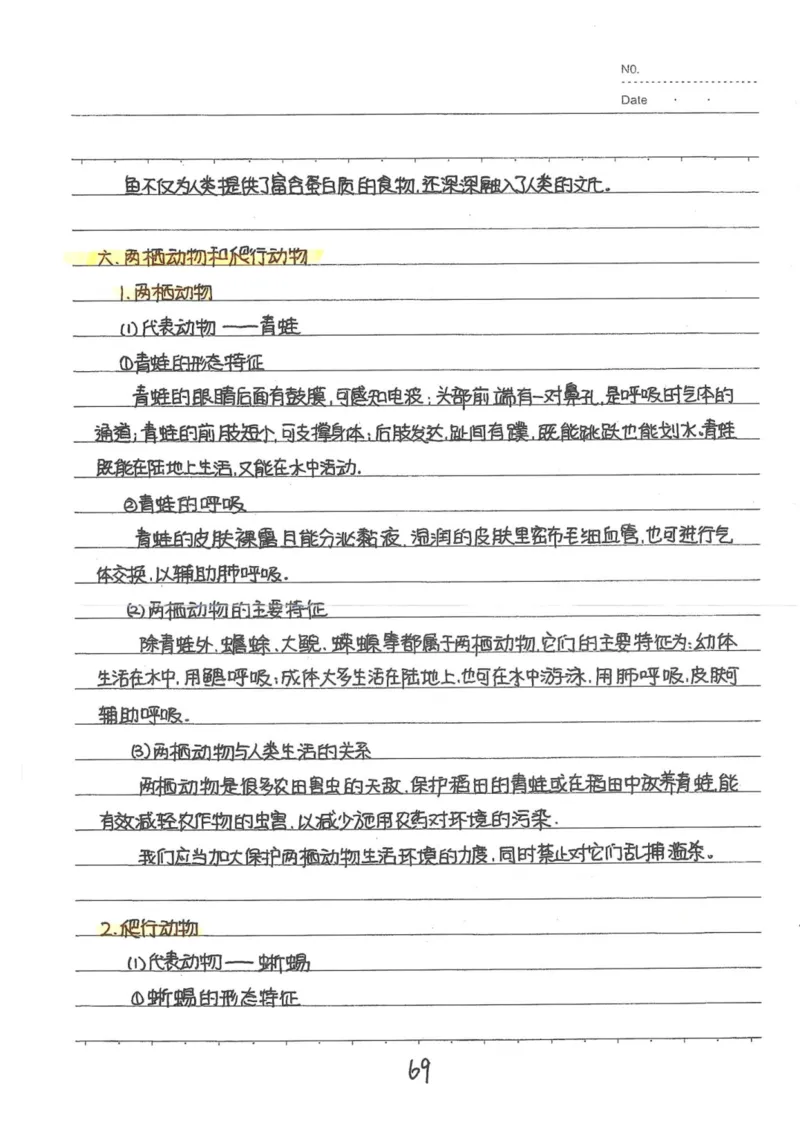 NO.
Date
鱼不仅为人类提供了富含蛋白质的食物,还深深融入了人类的文化。
六.两栖动物和爬行动物
1.两栖动物
(1)代表动物——青蛙
①青蛙的形态特征
青蛙的眼睛后面有鼓膜,可感知电波;头部前端有一对鼻孔,是呼吸时气体的
通道;青蛙的前肢短小,可支撑身体;后肢发达,趾间有蹼,既能跳跃也能划水。青蛙
既能在陆地上生活,又能在水中活动.
②青蛙的呼吸
青蛙的皮肤裸露且能分泌黏液.湿润的皮肤里密布毛细血管,也可进行气
体交换,以辅助肺呼吸.
(2)两栖动物的主要特征
除青蛙外,蟾蜍、大鲵、蝾螈等都属于两栖动物,它们的主要特征为:幼体
生活在水中,用鳃呼吸;成体大多生活在陆地上,也可在水中游泳,用肺呼吸,皮肤可
辅助呼吸.
(3)两栖动物与人类生活的关系
两栖动物是很多农田害虫的天敌,保护稻田的青蛙或在稻田中放养青蛙,能
有效减轻农作物的虫害,以减少施用农药对环境的污染.
我们应当加大保护两栖动物生活环境的力度,同时禁止对它们乱捕滥杀。
2.爬行动物
(1)代表动物——蜥蜴
①蜥蜴的形态特征
69